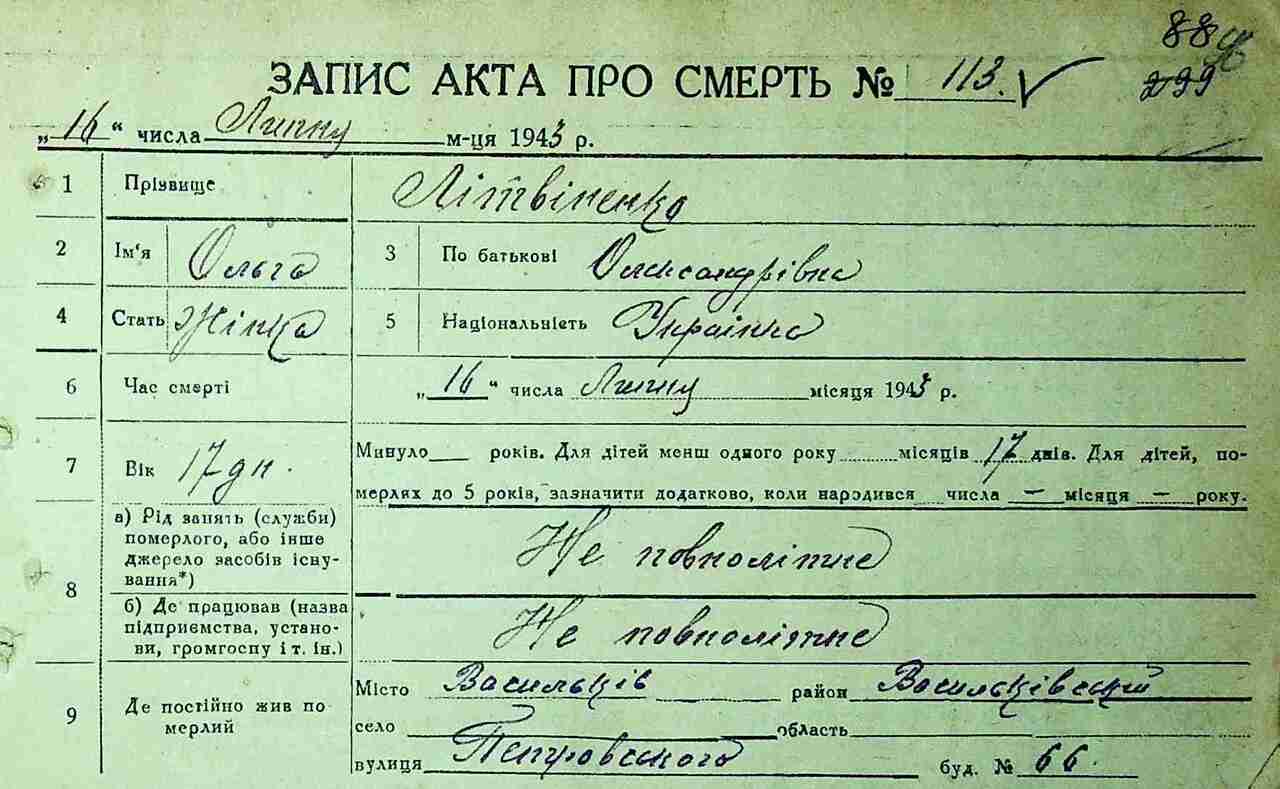 88
ЗАПИС АКТА ПРО СМЕРТЬ № 113.
299
„16“ числа Липня м-ця 1943 р.
1 Прізвище Літвіненко
2 Ім'я Ольга 3 По батькові Олександрівна
4 Стать Жінка 5 Національність Українка
6 Час смерті „16“ числа Липня місяця 1943 р.
7 Вік 17 дн. Минуло___ років. Для дітей менш одного року ........ місяців 17 днів. Для дітей, по-
мерлях до 5 років, зазначити додатково, коли народився __ числа — місяця — року.
8 а) Рід занять (служби)
померлого, або інше
джерело засобів існу-
вання*) Не повнолітнє
б) Де працював (назва
підприємства, устано-
ви, громгоспу і т. ін.) Не повнолітнє
9 Де постійно жив по
мерлий
Місто Васильків район Васильківський
село область
вулиця Петровського буд. № 66.